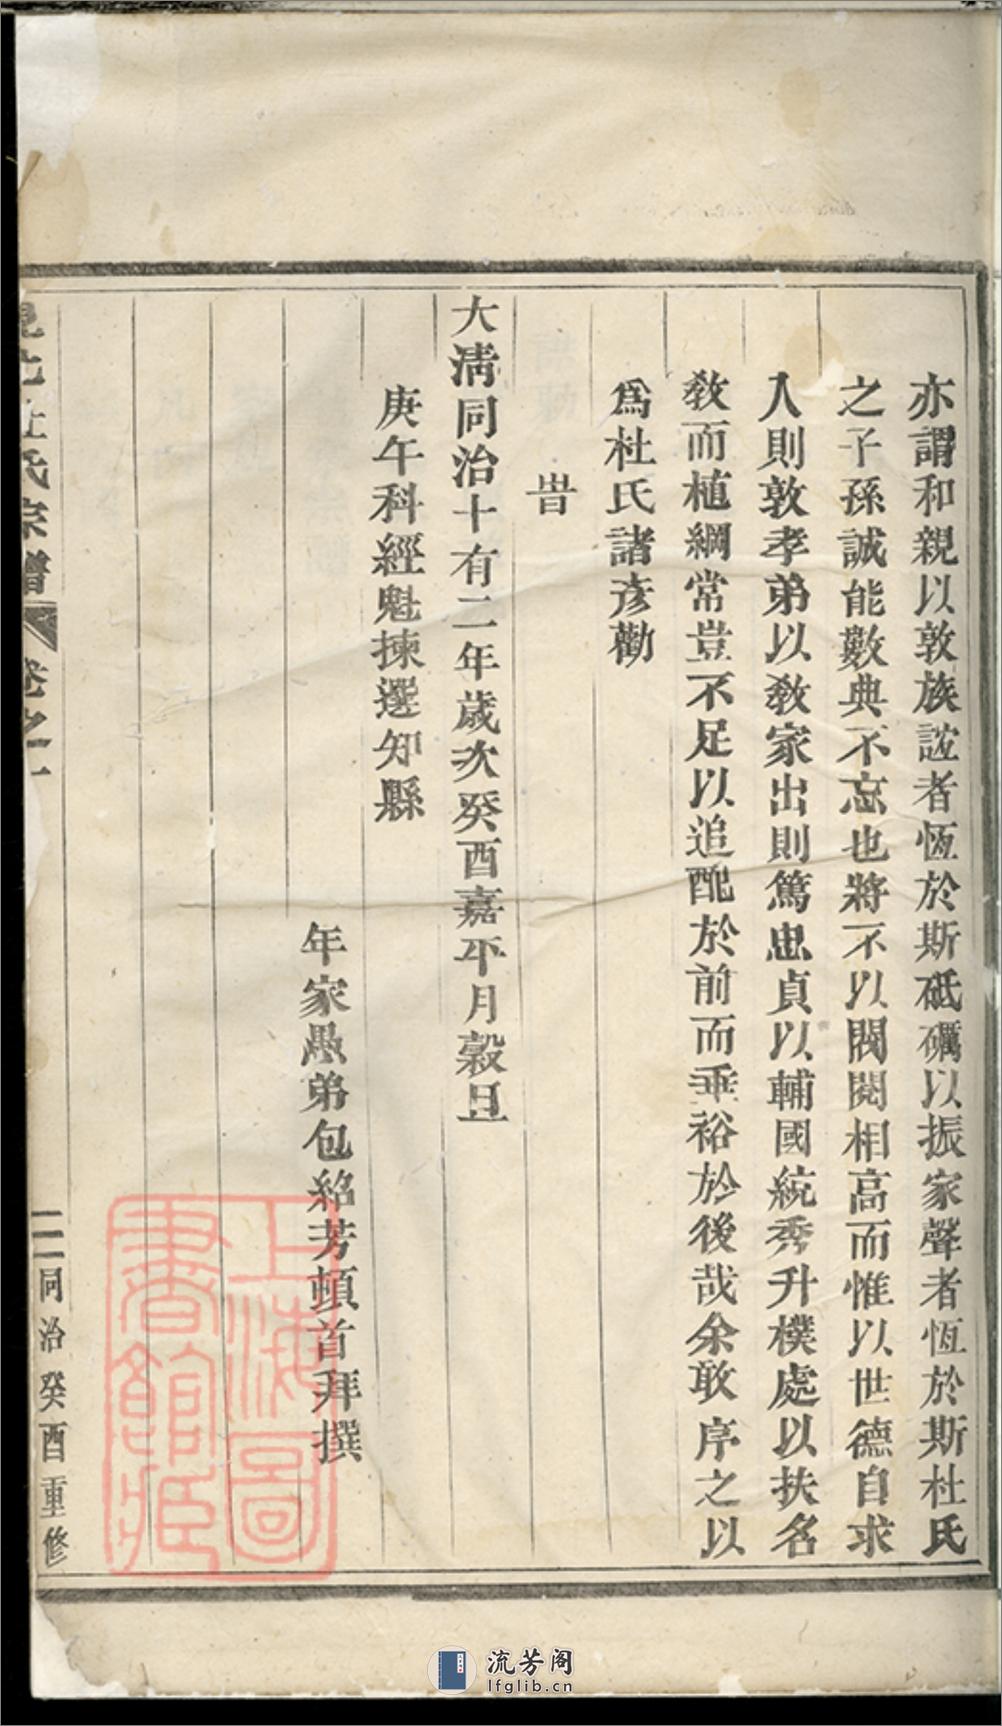 亦謂和親以敦族誼者恆於斯砥礪以振家聲者恆於斯杜氏
之子孫誠能數典不忘也將不以閥閱相高而惟以世德自求
入則敦孝弟以敎家出則篤忠貞以輔國統秀升樸處以扶名
敎而植綱常豈不足以追配於前而垂裕於後哉余敢序之以
爲杜氏諸彥勸
旹
大淸同治十有二年歲次癸酉嘉平月穀旦
庚午科經魁揀選知縣
年家愚弟包紹芳頓首拜撰
杜氏宗譜
卷之一
三
同治癸酉重修
上海圖書館藏
流芳阁
lfglib.cn